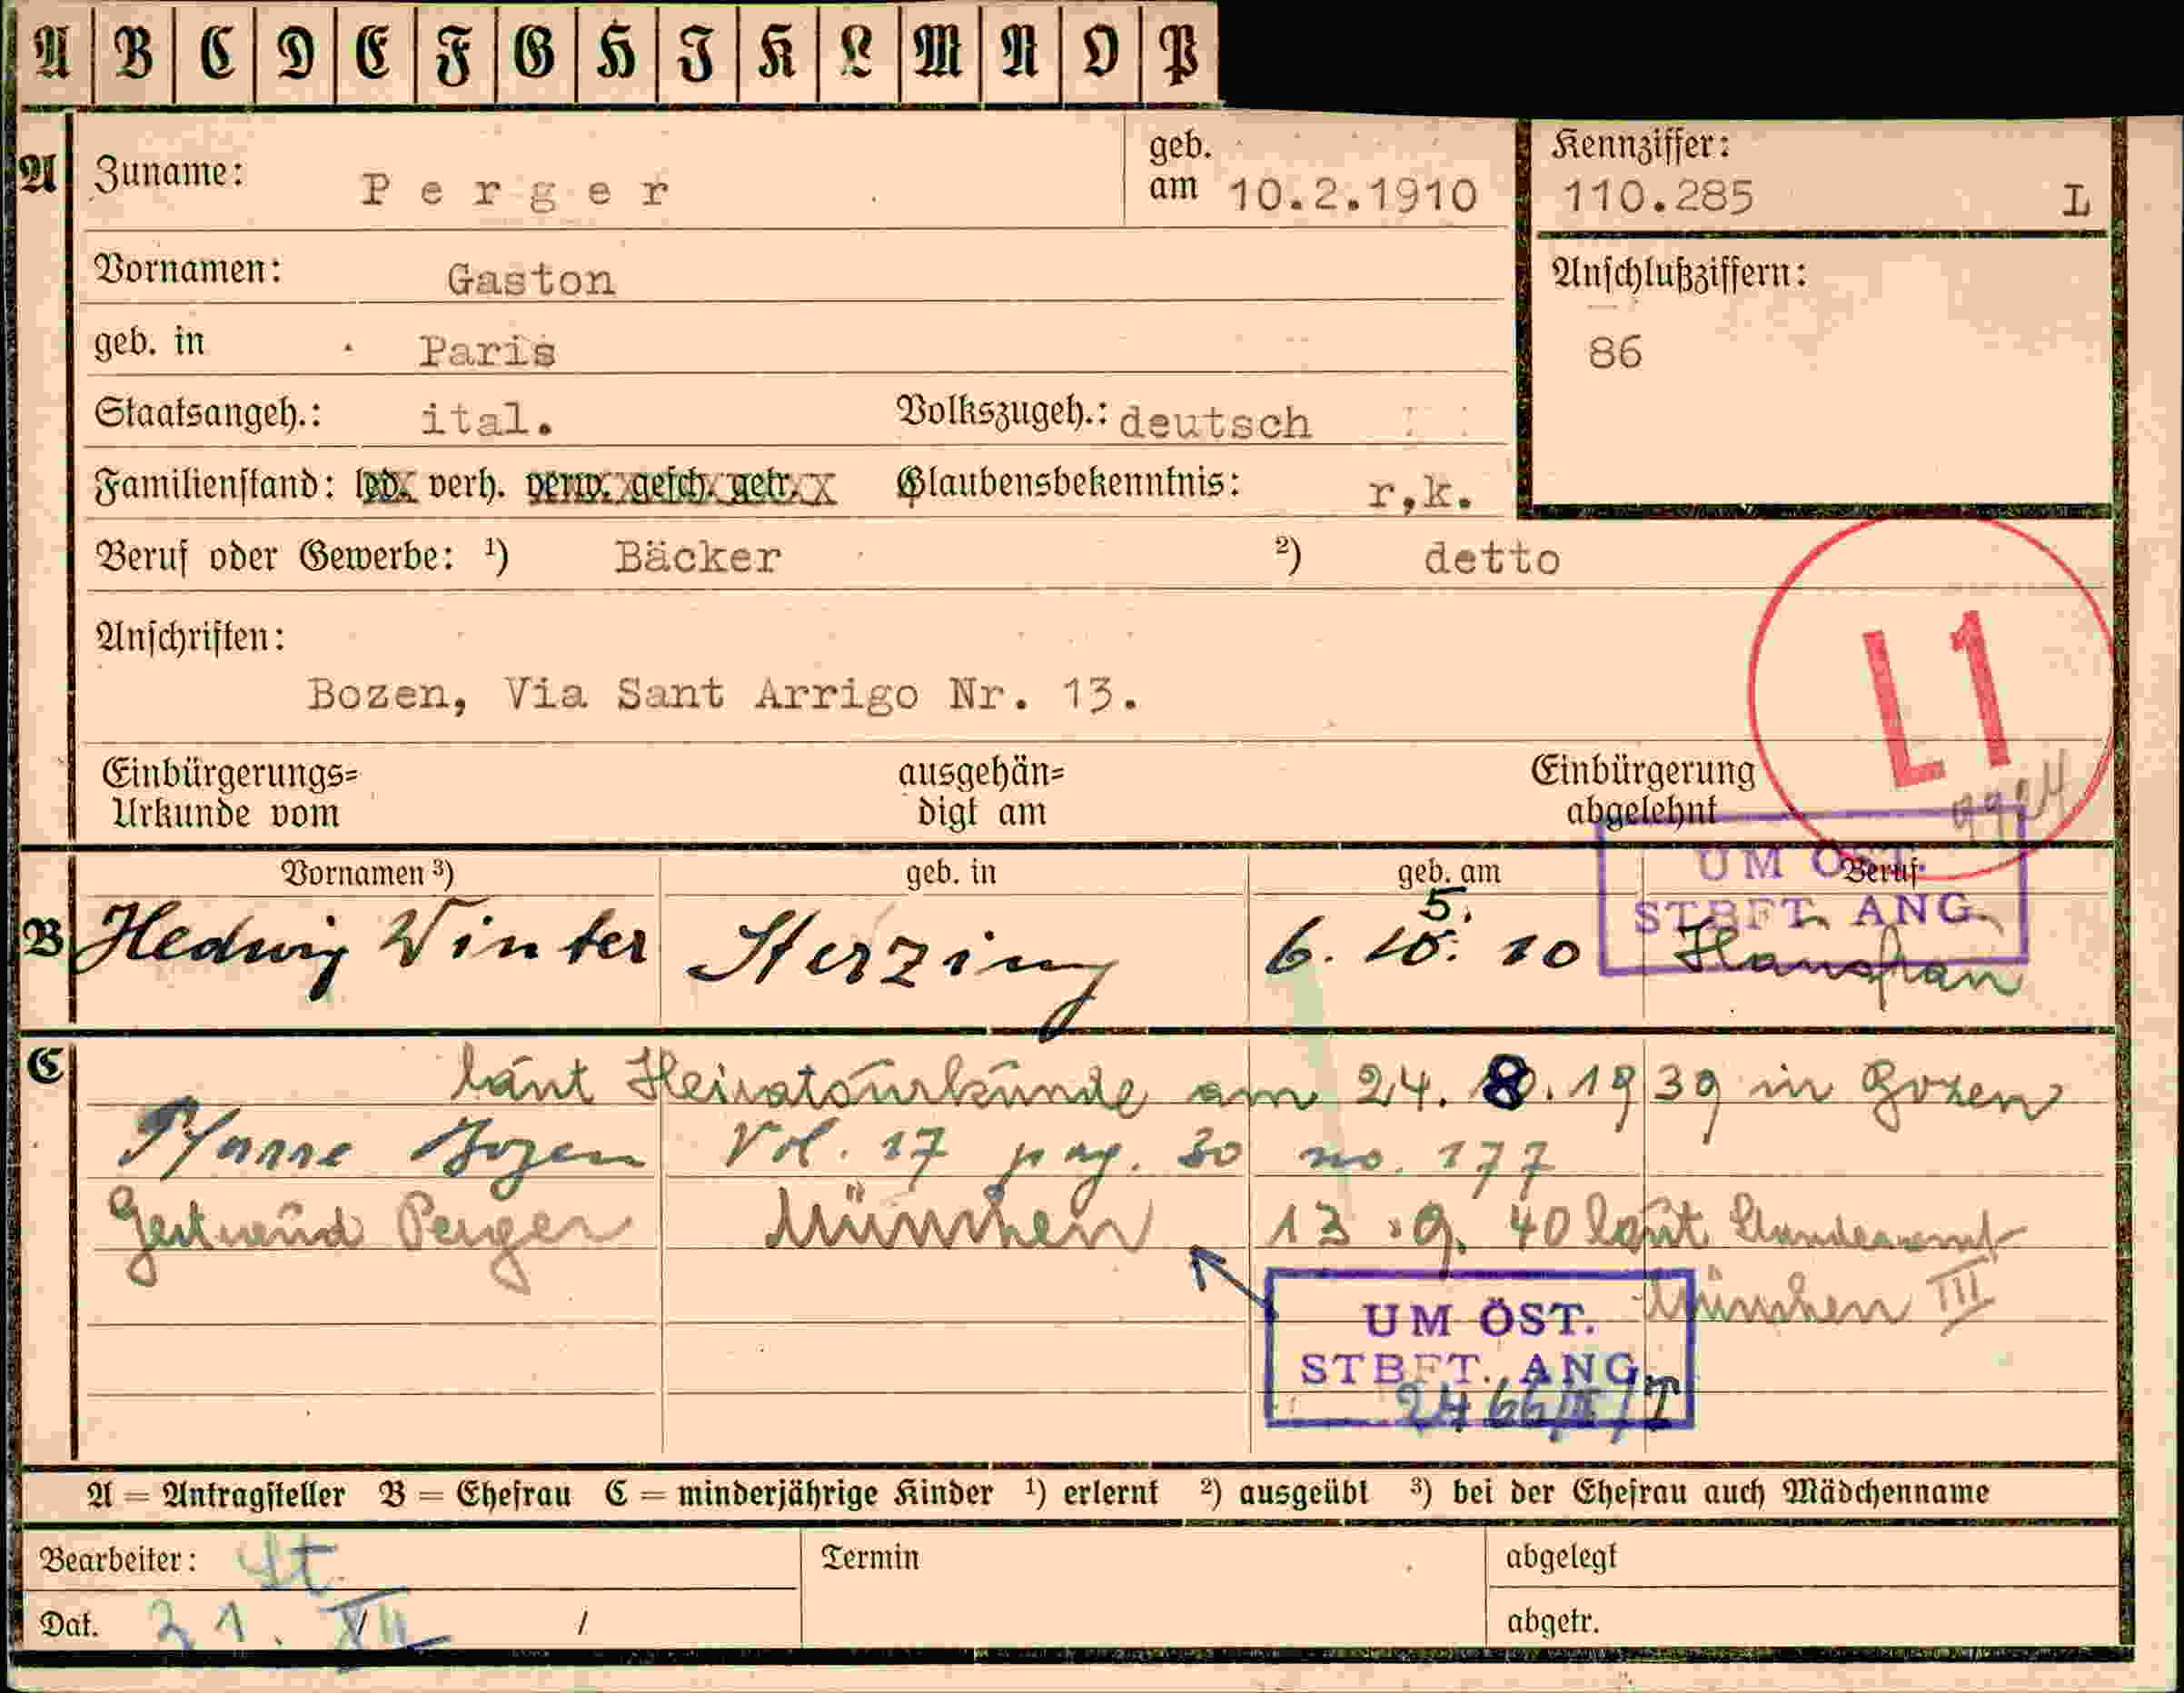 A B C D E F G H I K L M N O P
A Zuname: Perger geb. am 10.2.1910
Kennziffer: 110.285 L
Vornamen: Gaston
Anschlußziffern:
86
geb. in Paris
Staatsangeh.: ital. Volkszugeh.: deutsch
Familienstand: led. verh. verw. gesch. getr. Glaubensbekenntnis: r,k.
Beruf oder Gewerbe: ¹) Bäcker ²) detto
Anschriften:
Bozen, Via Sant Arrigo Nr. 13.
L1
Einbürgerungs= Urkunde vom
ausgehän= digt am
Einbürgerung abgelehnt
UM ÖST.
STBFT. ANG.
Vornamen ³) geb. in geb. am Beruf
B Hedwig Winter Sterzing 6. 10. 5. 10 Hausfrau
C laut Heiratsurkunde am 24. 8. 1939 in Bozen
Pfarre Bozen Vol. 17 pag. 30 no. 177
Gertraud Perger München 13. 9. 40 laut Standesamt
München III
UM ÖST.
STBFT. ANG.
A = Antragsteller B = Ehefrau C = minderjährige Kinder ¹) erlernt ²) ausgeübt ³) bei der Ehefrau auch Mädchenname
Bearbeiter: St. Termin abgelegt
Dat. 31. XII / abgetr.